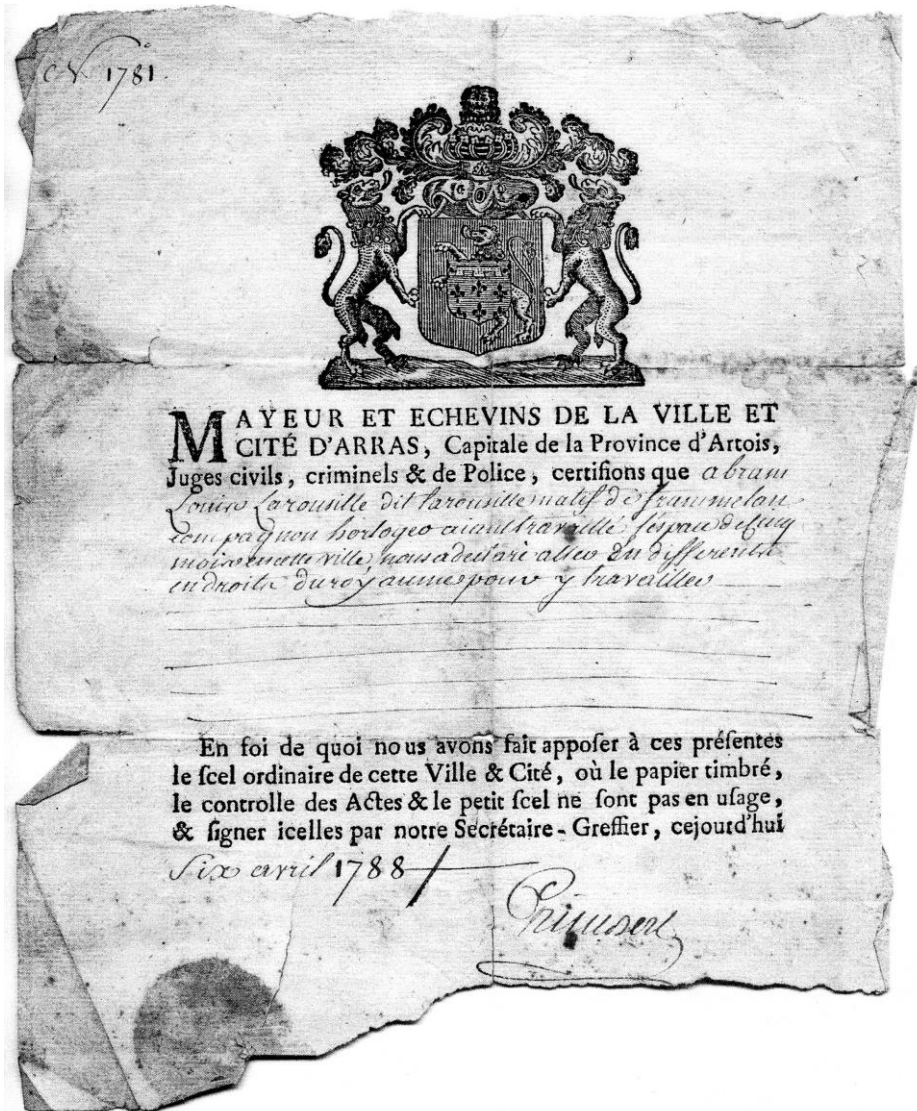 N.º 1781.
MAYEUR ET ECHEVINS DE LA VILLE ET
CITÉ D'ARRAS, Capitale de la Province d'Artois,
Juges civils, criminels & de Police, certifions que abram
Louis Larousille dit larousille natif de
compagnon horloger aiant travaillé l'espace de cinq
mois en cette ville, nous a declaré aller en differents
endroits du royaume pour y travailler
En foi de quoi nous avons fait appoſer à ces préſentes
le ſcel ordinaire de cette Ville & Cité, où le papier timbré,
le controlle des Actes & le petit ſcel ne ſont pas en uſage,
& ſigner icelles par notre Secrétaire-Greffier, cejourd'hui
Six avril 1788